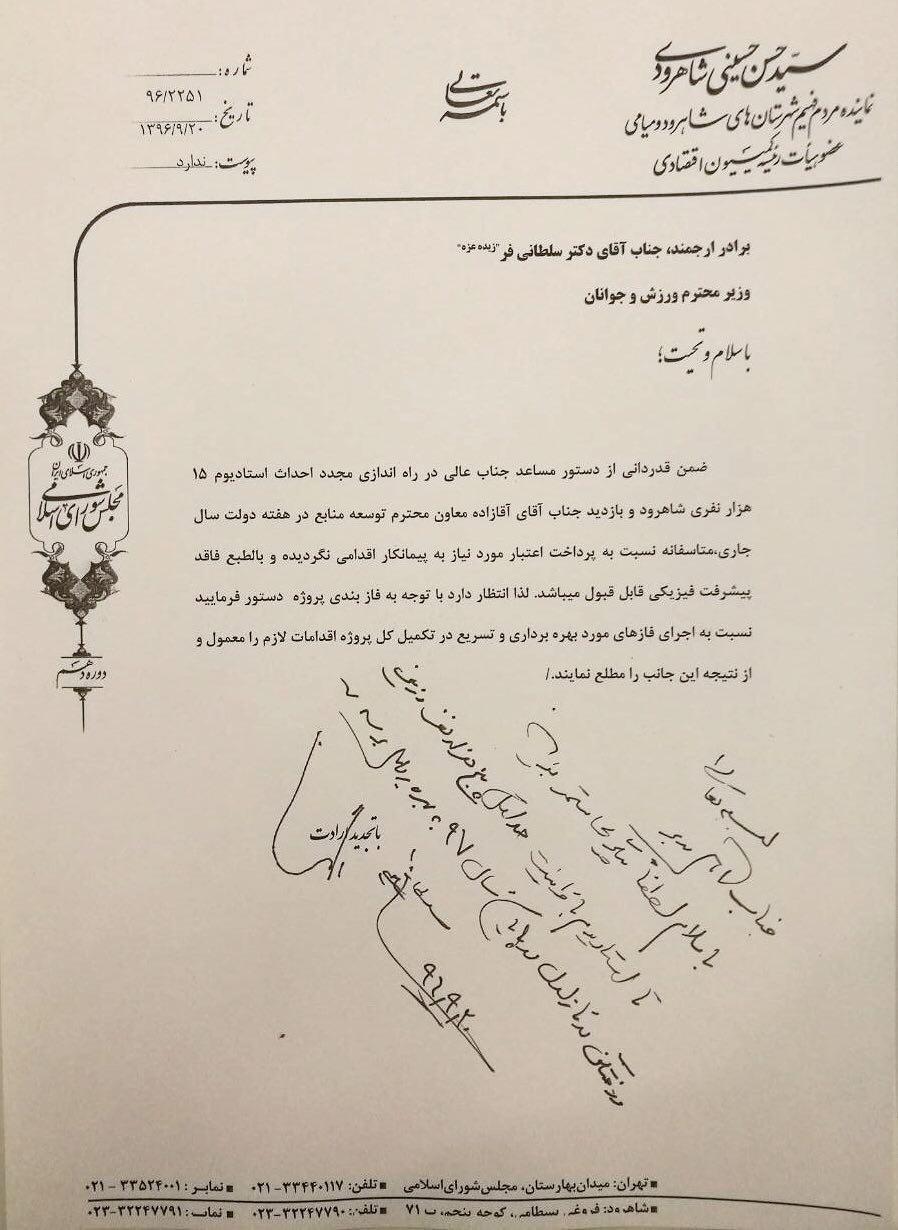 سیّد حسن حسینی شاهرودی
نماینده مردم فهیم شهرستان های شاهرود و میامی
عضو هیأت رئیسه کمیسیون اقتصادی
باسمه تعالی
شماره: ۹۶/۲۲۵۱
تاریخ: ۱۳۹۶/۹/۲۰
پیوست: ندارد
برادر ارجمند، جناب آقای دکتر سلطانی فر "زیده عزه"
وزیر محترم ورزش و جوانان
باسلام و تحیت؛
ضمن قدردانی از دستور مساعد جناب عالی در راه اندازی مجدد احداث استادیوم ۱۵
هزار نفری شاهرود و بازدید جناب آقای آقازاده معاون محترم توسعه منابع در هفته دولت سال
جاری،متاسفانه نسبت به پرداخت اعتبار مورد نیاز به پیمانکار اقدامی نگردیده و بالطبع فاقد
پیشرفت فیزیکی قابل قبول میباشد. لذا انتظار دارد با توجه به فاز بندی پروژه دستور فرمایید
نسبت به اجرای فازهای مورد بهره برداری و تسریع در تکمیل کل پروژه اقدامات لازم را معمول و
از نتیجه این جانب را مطلع نمایند./
جمهوری اسلامی ایران
مجلس شورای اسلامی
دوره دهم
با تجدید ارادت
جناب
با سلام لطفا
تا استادیوم
سال ۹۷
۹۶/۹/۲۰
■ تهران: میدان بهارستان، مجلس شورای اسلامی ■ تلفن: ۳۳۴۴۰۱۱۷-۰۲۱ ■ نمابر: ۳۳۵۲۴۰۰۱-۰۲۱
■ شاهرود: فروغی بسطامی، کوچه پنجم، پ ۷۱ ■ تلفن: ۳۲۲۴۷۷۹۰-۰۲۳ ■ نمابر: ۳۲۲۴۷۷۹۱-۰۲۳